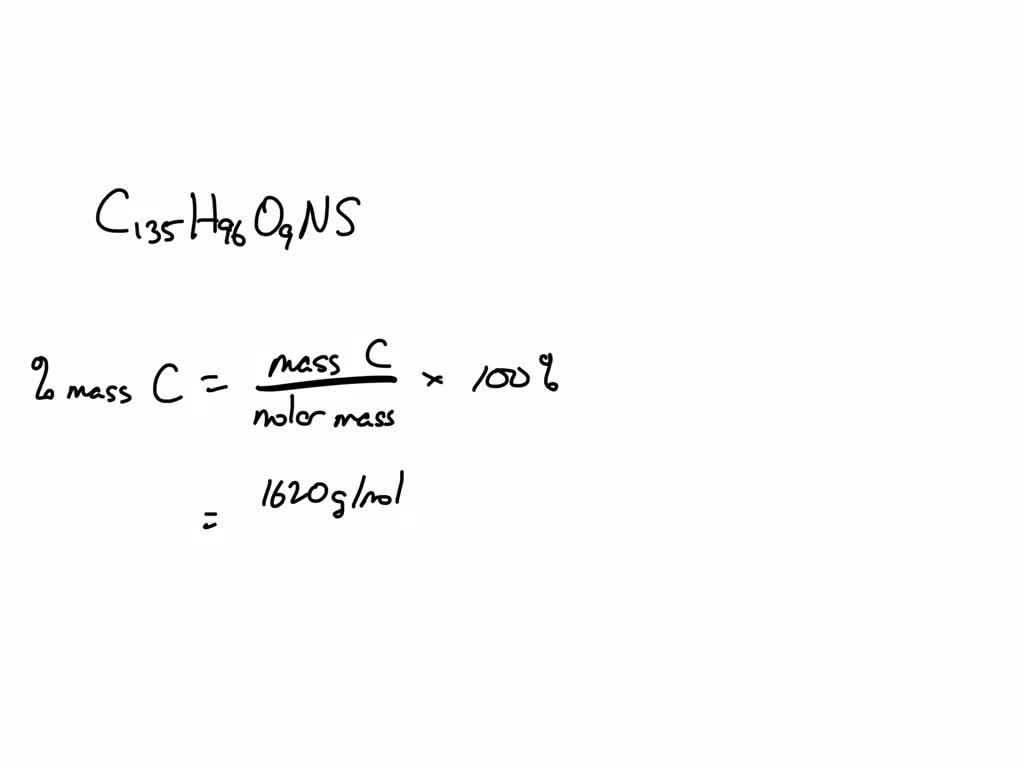 C₁₃₅H₉₆O₉NS
% mass C = mass C / molar mass × 100%
= 1620g/mol